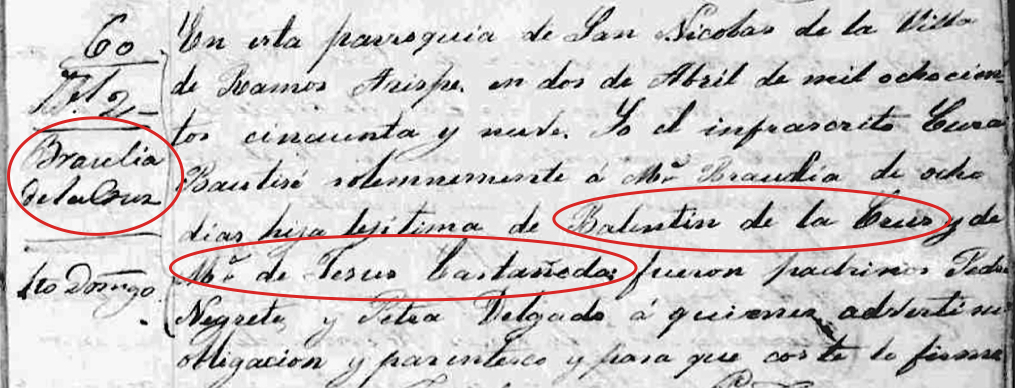 60
Abl 2
Braulia
de la Cruz
Sto Domgo.
En esta parroquia de San Nicolas de la Villa
de Ramos Arispe, en dos de Abril de mil ochocien
tos cincuenta y nueve. Yo el infrascrito Cura
Bautisé solemnemente á Mª Braulia de ocho
dias hija lejitima de Balentin de la Cruz y de
Mª de Jesus Castañeda; fueron padrinos Pedro
Negrete, y Petra Delgado á quienes advertí su
obligacion y parentesco y para que coste lo firme